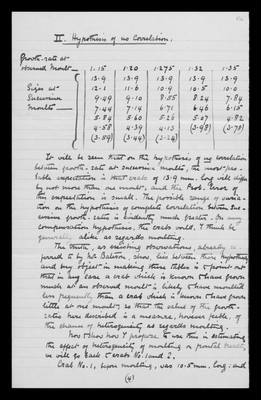 II. Hypothesis of no Correlation.
Growth-rate at
observed Moult— 1.15 1.20 1.275 1.32 1.35
13.9 13.9 13.9 13.9 13.9
Sizes at 12.1 11.6 10.9 10.5 10.0
Successive 9.49 9.10 8.55 8.24 7.84
Moults — 7.44 7.14 6.71 6.46 6.15
5.84 5.60 5.26 5.07 4.82
4.58 4.39 4.13 (3.98) (3.78)
(3.59) (3.44) (3.24)
It will be seen that on the hypothesis of no correlation
between growth-rate at successive moults, the most pro-
bable expectation is that crabs of 13.9 mm. long will differ
by not more than one moult, and the Prob. Error of
this expectation is small. The possible range of varia-
tion on the hypothesis of complete correlation between suc-
cessive growth-rates is evidently much greater. On any
compensation hypothesis, the crabs would, I think be
generally alike as regards moulting.
The truth, as existing observations, already re-
ferred to by Mr Galton, show, lies between these hypotheses
and my object in making these tables is to point out
that in any case a crab which is known to have grown
much at an observed moult is likely to have moulted
less frequently than a crab which is known to have grown
little at one moult; so that the value of the growth-
ratios here described is a measure, however feeble, of
the chance of heterogeneity as regards moulting.
Now to show how I propose to use this in estimating
the effect of heterogeneity of moulting on frontal
we will go back to crabs No. 1 and 2.
Crab No. 1, before moulting, was 10.5 mm. long, and
(4)